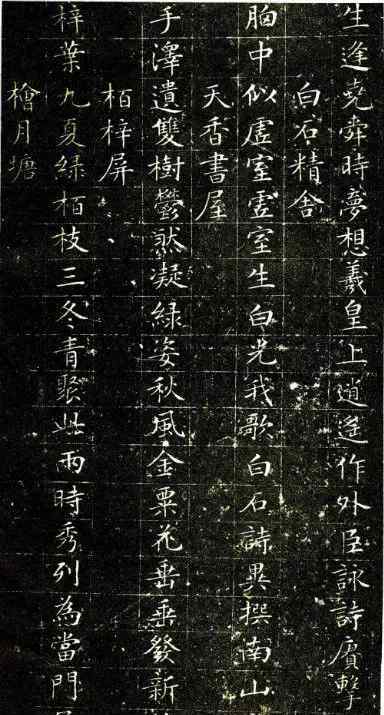 生逢堯舜時夢想羲皇上逍遙作外臣詠詩賡擊
白石精舍
胸中似虛室虛室生白光我歌白石詩異撰南山
天香書屋
手澤遺雙樹鬱然凝綠姿秋風金粟花垂垂發新
栢梓屏
梓葉九夏綠栢枝三冬青聚此兩時秀列為當門
檜月塘